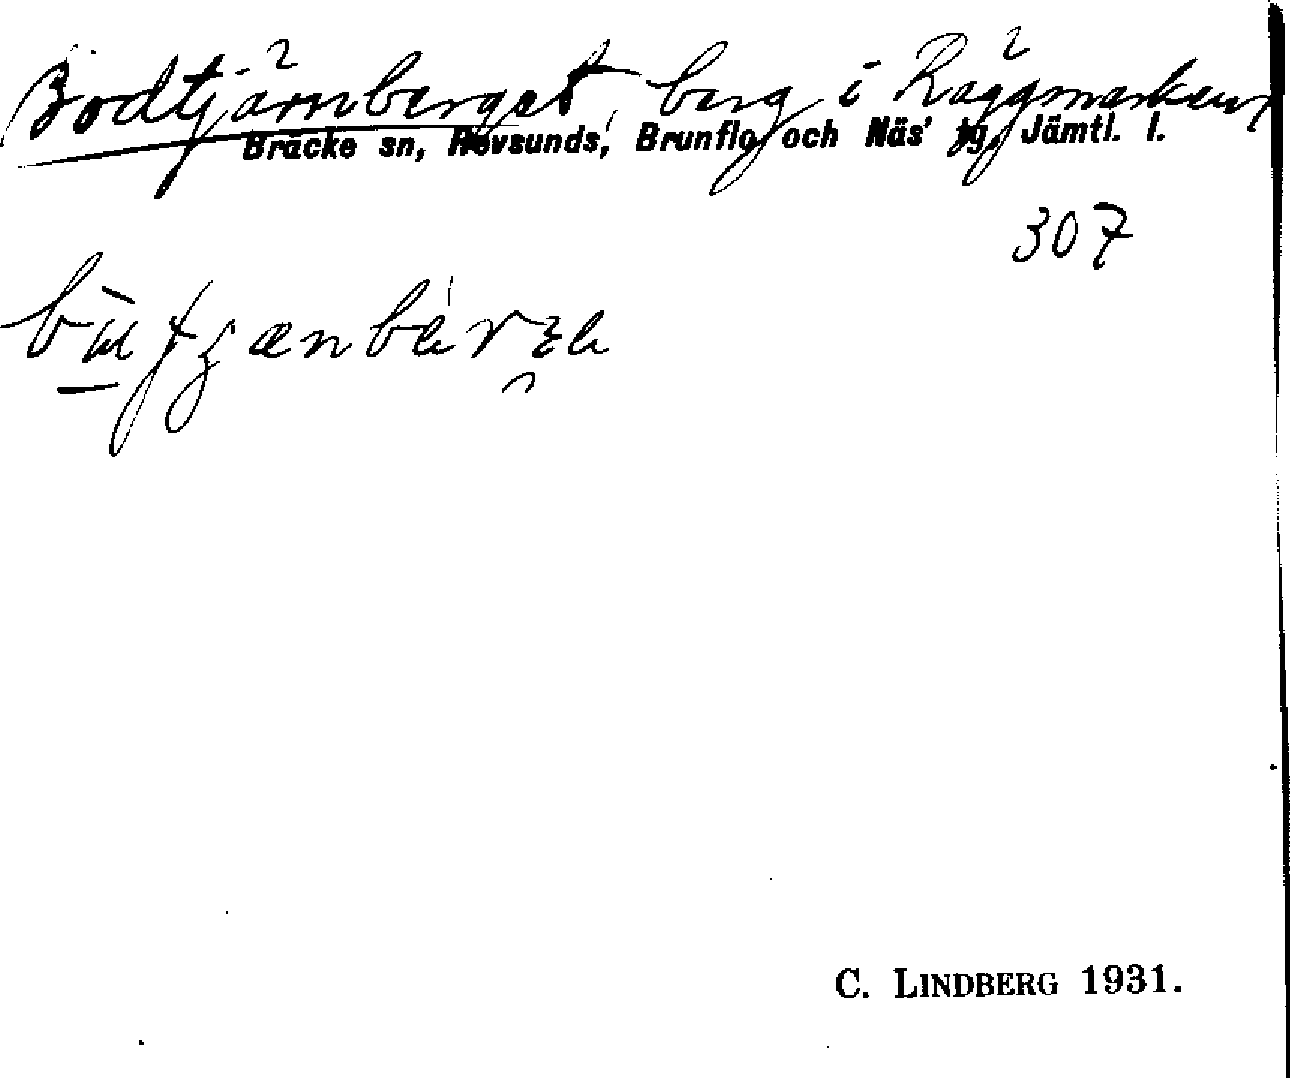 Bodtjärnberget, berg i Räggmarken,
Bräcke sn, Revsunds, Brunflo och Näs' tg, Jämtl. l.
307
C. LINDBERG 1931.